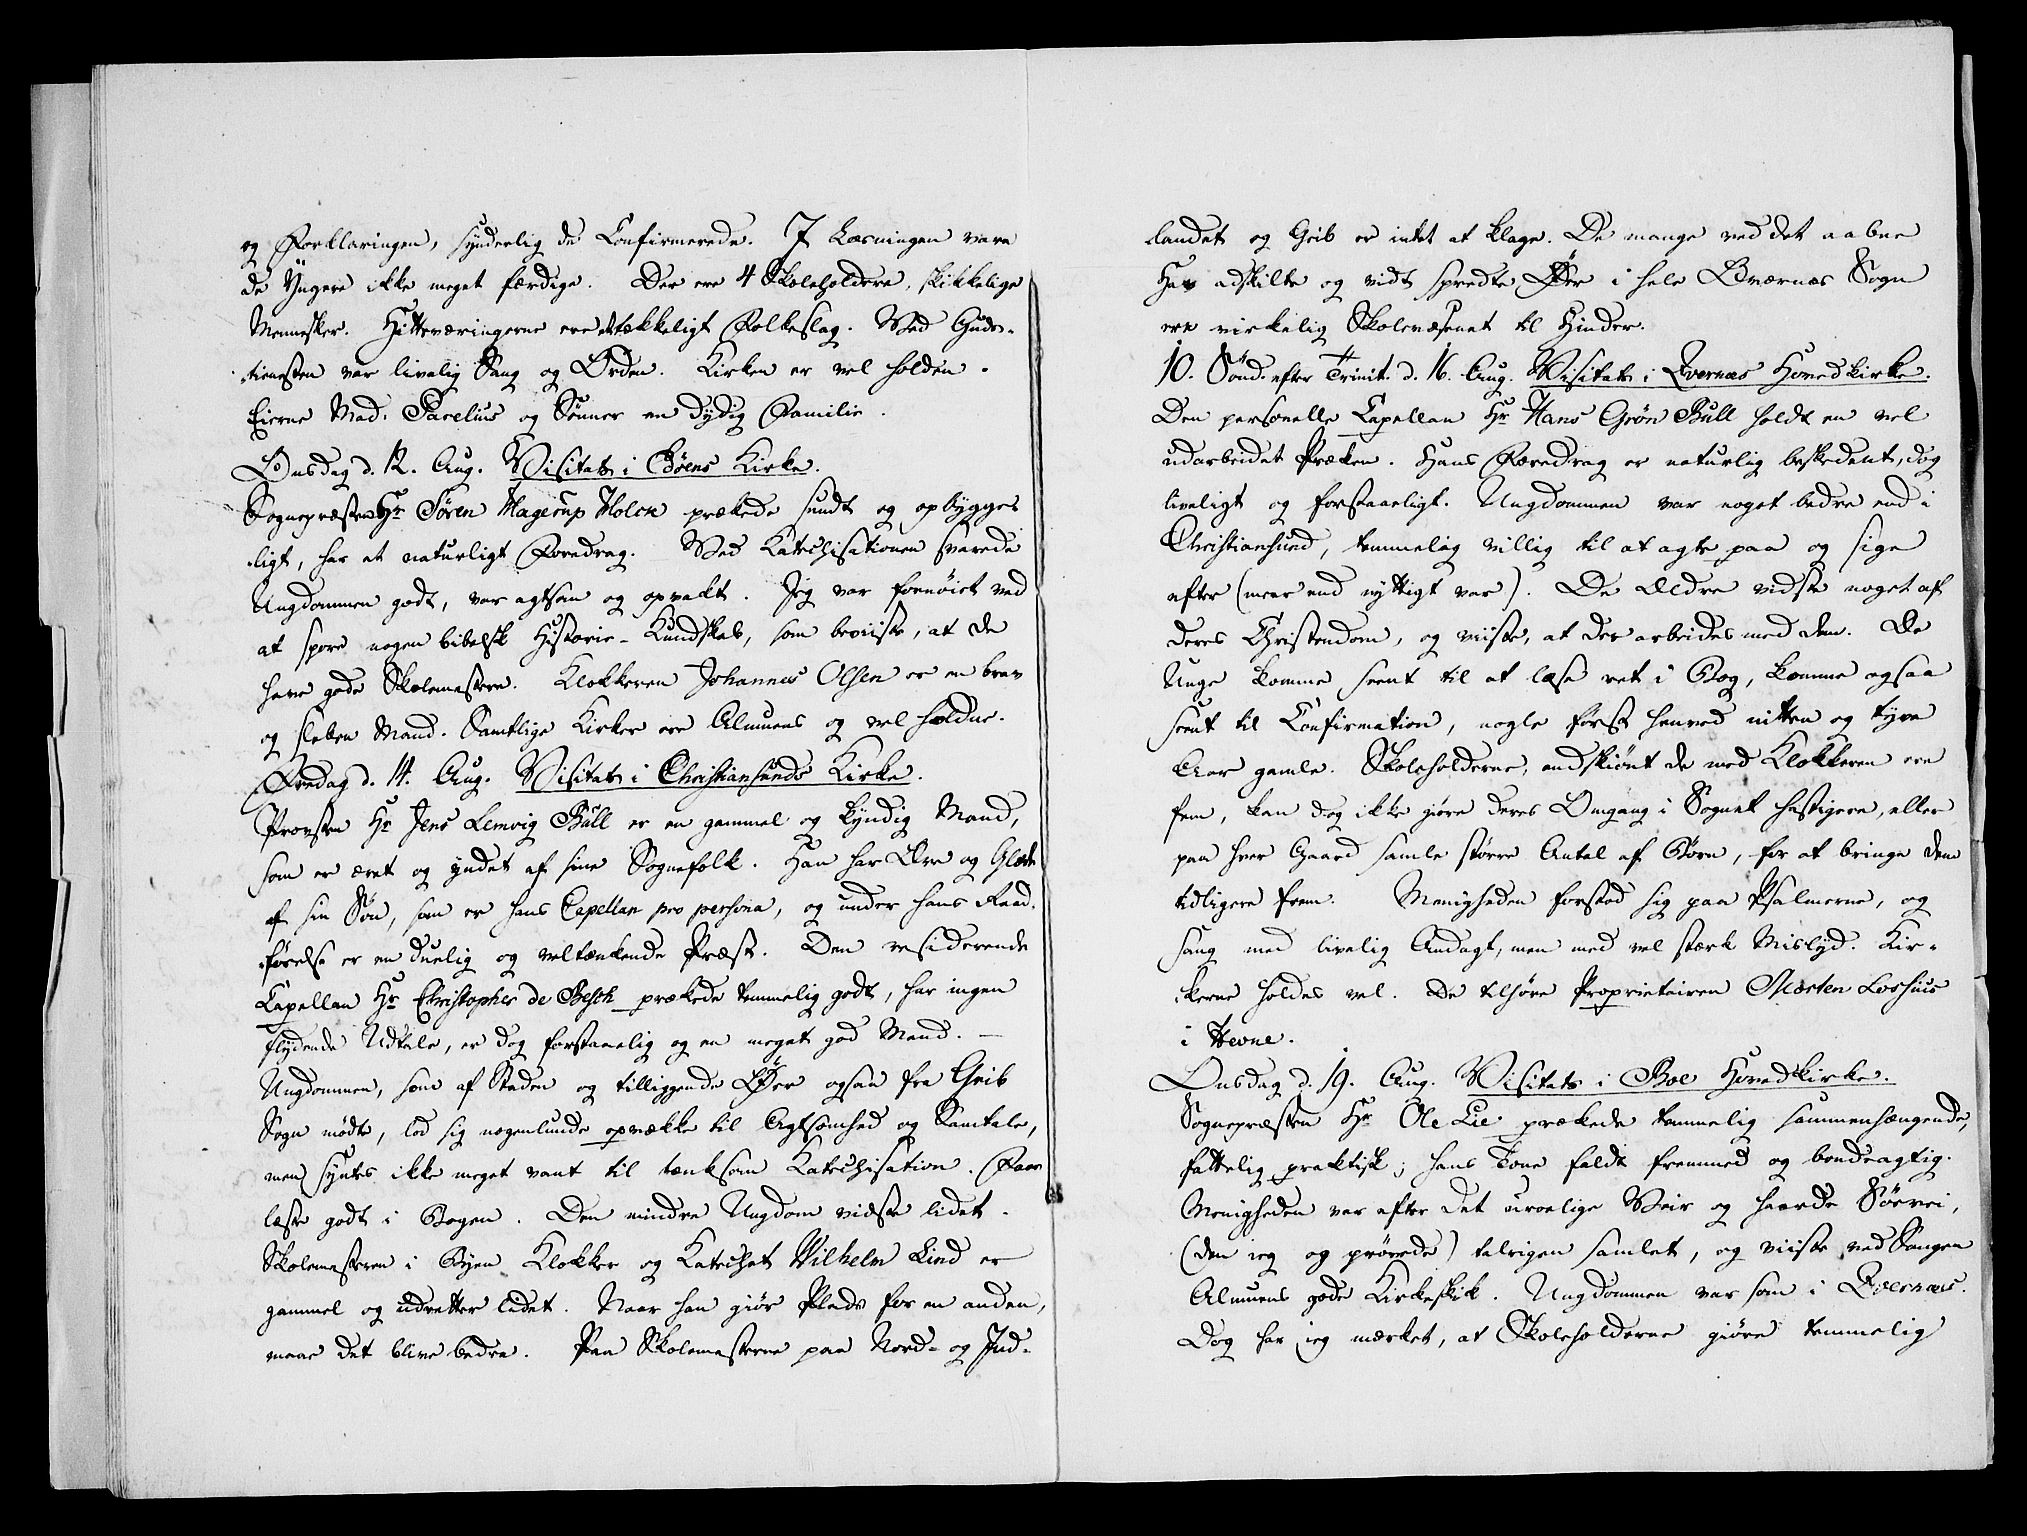 og Forklaringen, synderlig de Confirmerede. I Læsningen vare
de Yngere ikke meget færdige. Der ere 4 Skoleholdere, skikkelige
Mennesker. Hitteværingerne ere et tækkeligt Folkeslag. Ved Guds-
tienesten var livelig Sang og Orden. Kirken er vel holden.
Eierne Mad. Parelius og Sønner en dydig Familie.
Onsdag d. 12. Aug. Visitats i Øens Kirke.
Sognepræsten Hr Søren Hagerup Holck prækede sundt og opbygge-
ligt, har et naturligt Foredrag. Ved Katechisationen svarede
Ungdommen godt, var agtsom og opvakt. Jeg var fornøiet ved
at spore nogen bibelsk Historie-Kundskab, som beviiste, at de
have gode Skolemestere. Klokkeren Johannes Olsen er en brav
og sleben Mand. Samtlige Kirker ere Almuens og vel holdne.
Fredag d. 14. Aug. Visitats i Christiansunds Kirke.
Provsten Hr Jens Lemvig Bull er en gammel og kyndig Mand,
som er æret og yndet af sine Sognefolk. Han har Ære og Glæde
af sin Søn, som er hans Capellan pro persona, og under hans Raad-
førelse er en duelig og veltænkende Præst. Den residerende
Capellan Hr Christopher de Besch prækede temmelig godt, har ingen
flydende Udtale, er dog forstaaelig og en meget god Mand. —
Ungdommen, som af Staden og tilliggende Øer ogsaa fra Grib
Sogn mødte, lod sig nogenlunde opvække til Agtsomhed og Samtale,
men syntes ikke meget vant til tænksom Katechisation. Faae
læste godt i Bogen. Den mindre Ungdom vidste lidet.
Skolemesteren i Byen Klokker og Katechet Wilhelm Lind er
gammel og udretter lidet. Naar han giør Plads for en anden,
maae det blive bedre. Paa Skolemesterne paa Nord- og Ind-
landet og Grib er intet at klage. De mange ved det aabne
Hav adskilte og vidt spredte Øer i hele Qværnæs Sogn
ere virkelig Skolevæsenet til Hinder.
10. Sønd. efter Trinit. d. 16. Aug. Visitats i Qvernæs Hovedkirke.
Den personelle Capellan Hr Hans Grøn Bull holdt en vel
udarbeidet Præken. Hans Foredrag er naturlig beskedent, dog
liveligt og forstaaeligt. Ungdommen var noget bedre end i
Christiansund, temmelig villig til at agte paa og sige
efter (meer end nyttigt var). De Ældre vidste noget af
deres Christendom, og viiste, at der arbeides med dem. De
Unge komme seent til at læse ret i Bog, komme ogsaa
seent til Confirmation, nogle først henved nitten og tyve
Aar gamle. Skoleholderne, endskiønt de med Klokkeren ere
fem, kan dog ikke giøre deres Omgang i Sognet hastigere, eller
paa hver Gaard samle større Antal af Børn, for at bringe dem
tidligere frem. Menigheden forstod sig paa Psalmerne, og
sang med livelig Andagt, men med vel stærk Mislyd. Kir-
kerne holdes vel. De tilhøre Proprietairen Morten Loshuis
i Hevne.
Onsdag d. 19. Aug. Visitats i Boe Hovedkirke.
Sognepræsten Hr Ole Lie prækede temmelig sammenhængende,
fattelig praktisk; hans Tone faldt fremmed og bondeagtig.
Menigheden var efter det urolige Veir og haarde Søevei,
(den ieg og prøvede) talrigen samlet, og viiste ved Sangen
Almuens gode Kirkeskik. Ungdommen var som i Qvernæs.
Dog har ieg mærket, at Skoleholderne giøre temmelig